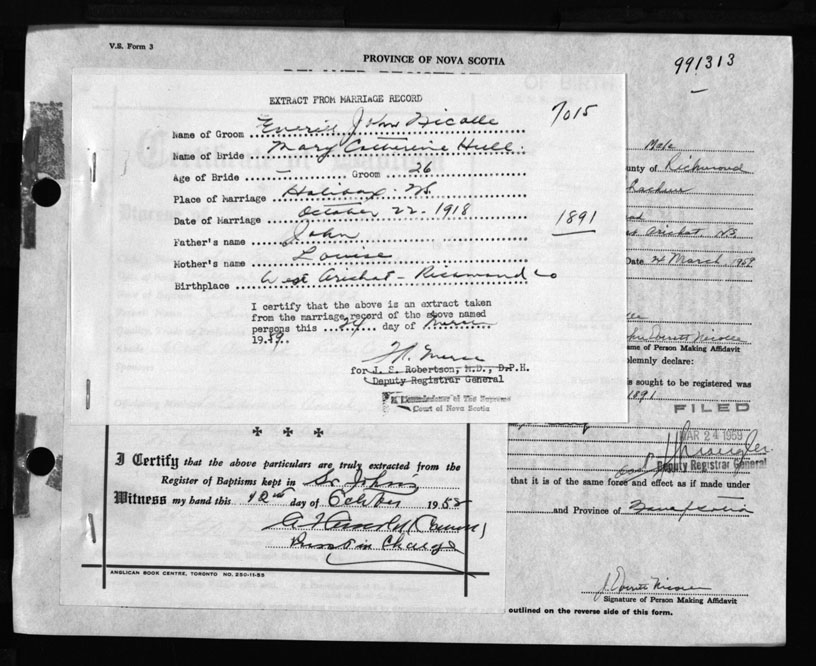 V.S. Form 3
PROVINCE OF NOVA SCOTIA
991313
EXTRACT FROM MARRIAGE RECORD
7015
Name of Groom Everitt John Nicolle
Name of Bride Mary Catherine Hull
Age of Bride — Groom 26
Place of Marriage Halifax NS
Date of Marriage October 22 1918
1891
Father's name John
Mother's name Louise
Birthplace West Arichat - Richmond Co
I certify that the above is an extract taken
from the marriage record of the above named
persons this 24 day of
1959..
for J. S. Robertson, M.D., D.P.H.
Deputy Registrar General
A Commissioner of The Supreme
Court of Nova Scotia
I Certify that the above particulars are truly extracted from the
Register of Baptisms kept in St Johns
Witness my hand this 12th day of October 1958
Priest in Charge
ANGLICAN BOOK CENTRE, TORONTO NO. 250-11-55
OF BIRTH
Male
unty of Richmond
t Arichat, N.S.
Date 24 March, 1959
Everett Nicolle
me of Person Making Affidavit
olemnly declare:
is sought to be registered was
1891
FILED
MAR 24 1959
Deputy Registrar General
that it is of the same force and effect as if made under
and Province of Nova Scotia
J. Everett Nicolle
Signature of Person Making Affidavit
outlined on the reverse side of this form.